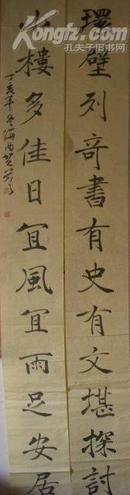 Kongfz.com
孔夫子旧书网
環壁列奇書有史有文堪探討
小樓多佳日宜風宜雨足安居
丁亥年冬海內